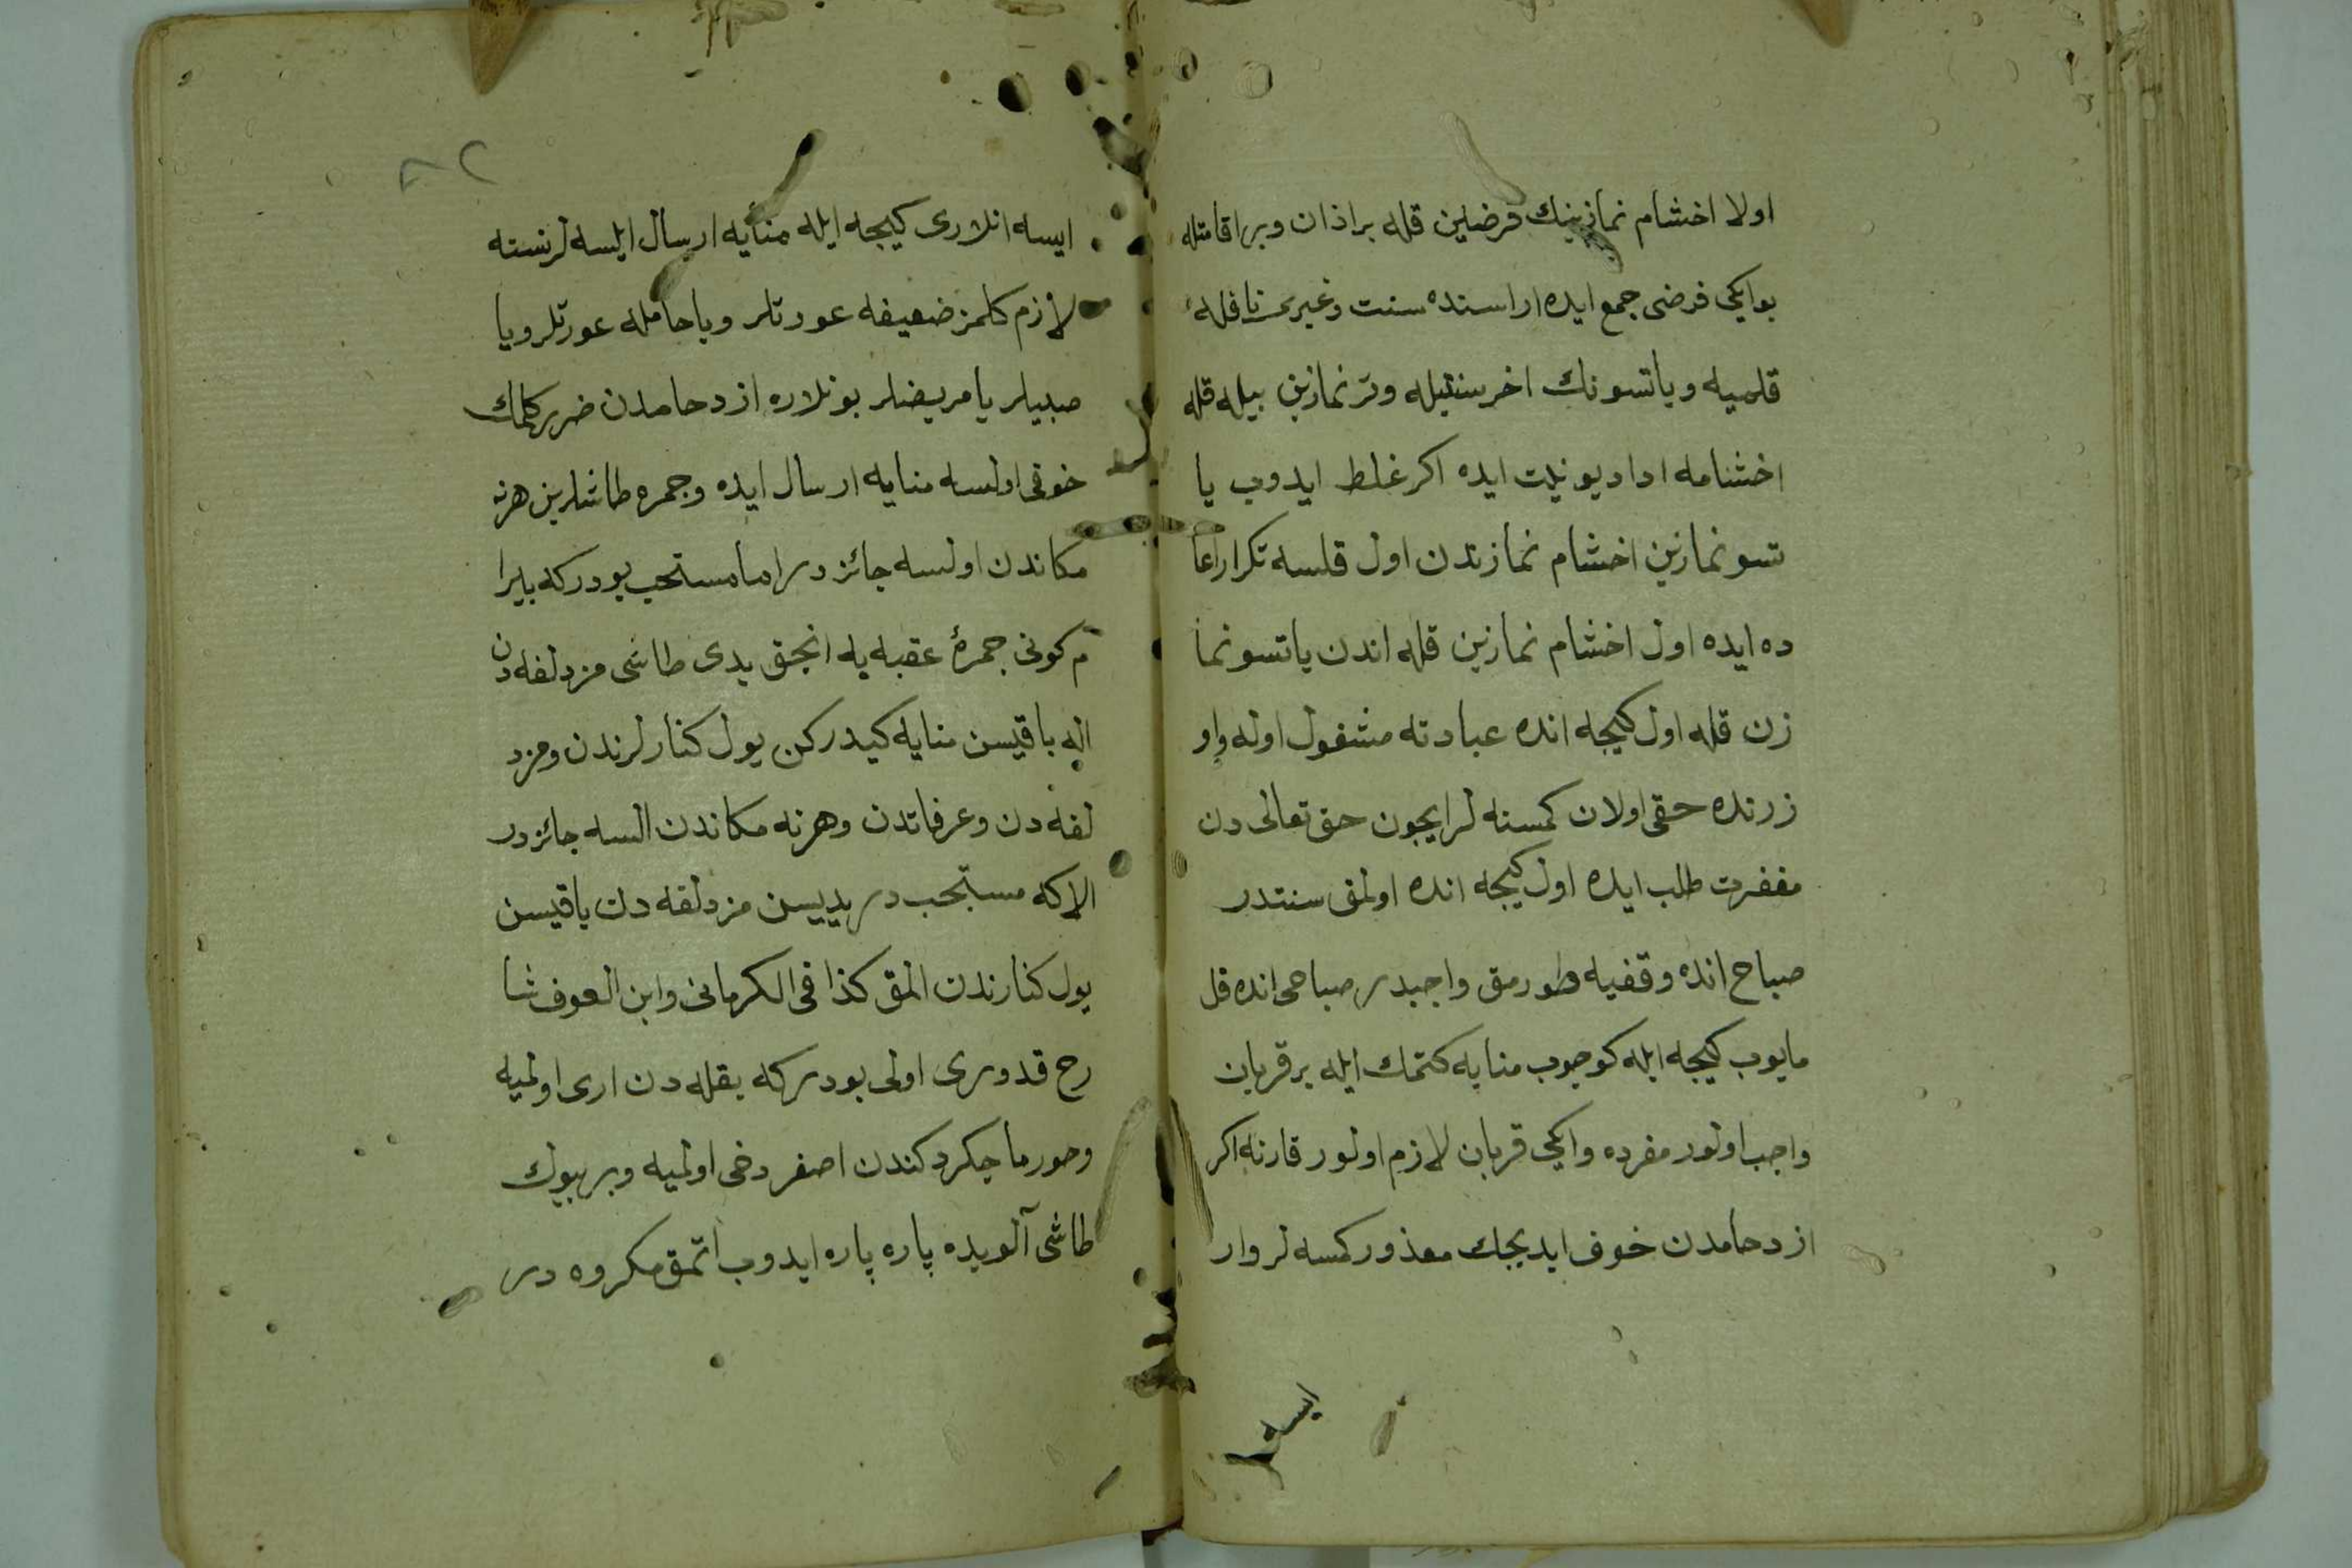 اولا اخشام نمازينك فرضلين قله بر اذان وبر اقامتله
بو ايكى فرضى جمع ايده اراسنده سنت وغيرى نافله
قلميه وياتسونك اخر سنتيله وتر نمازين بيله قله
اخشنامه ادا ديو نيت ايده اكر غلط ايدوب يا
تسو نمازين اخشام نمازندن اول قلسه تكرار اعا
ده ايده اول اخشام نمازين قله اندن ياتسو نما
زن قله اول كيجه انده عبادته مشغول اوله واو
زرنده حقى اولان كمسنه لر ايجون حق تعالى دن
مغفرت طلب ايده اول كيجه انده اولمق سنتدر
صباح انده وقفيه طورمق واجبدر صباحى انده قل
مايوب كيجه ايله كوجوب منايه كتمك ايله بر قربان
واجب اولور مفرده وايكى قربان لازم اولور قارنه اكر
ازدحامدن خوف ايديجك معذور كمسه لر وار
ايسه
٨٢
ايسه انلارى كيجه ايله منايه ارسال ايلسه لر نسته
لازم كلمز ضعيفه عورتلر وياحامله عورتلر ويا
صبيلر يا مريضلر بونلاره ازدحامدن ضرر كلمك
خوفى اولسه منايه ارسال ايده وجمره طاشلرين هرنه
مكاندن اولسه جائزدر اما مستحب بودركه بيرا
م كونى جمرۀ عقبه يه انجق يدى طاشى مزدلفه دن
اله باقيسن منايه كيدركن يول كنارلرندن ومزد
لفه دن وعرفاتدن وهرنه مكاندن السه جائزدر
الاكه مستحب در يديسن مزدلفه دن باقيسن
يول كنارندن المق كذا فى الكرمانى وابن العوف شا
رح قدورى اولى بودركه بقله دن ارى اولميه
وحورما چكردكندن اصغر دخى اولميه وبر بيوك
طاشى آلويده پاره پاره ايدوب اتمق مكروه در